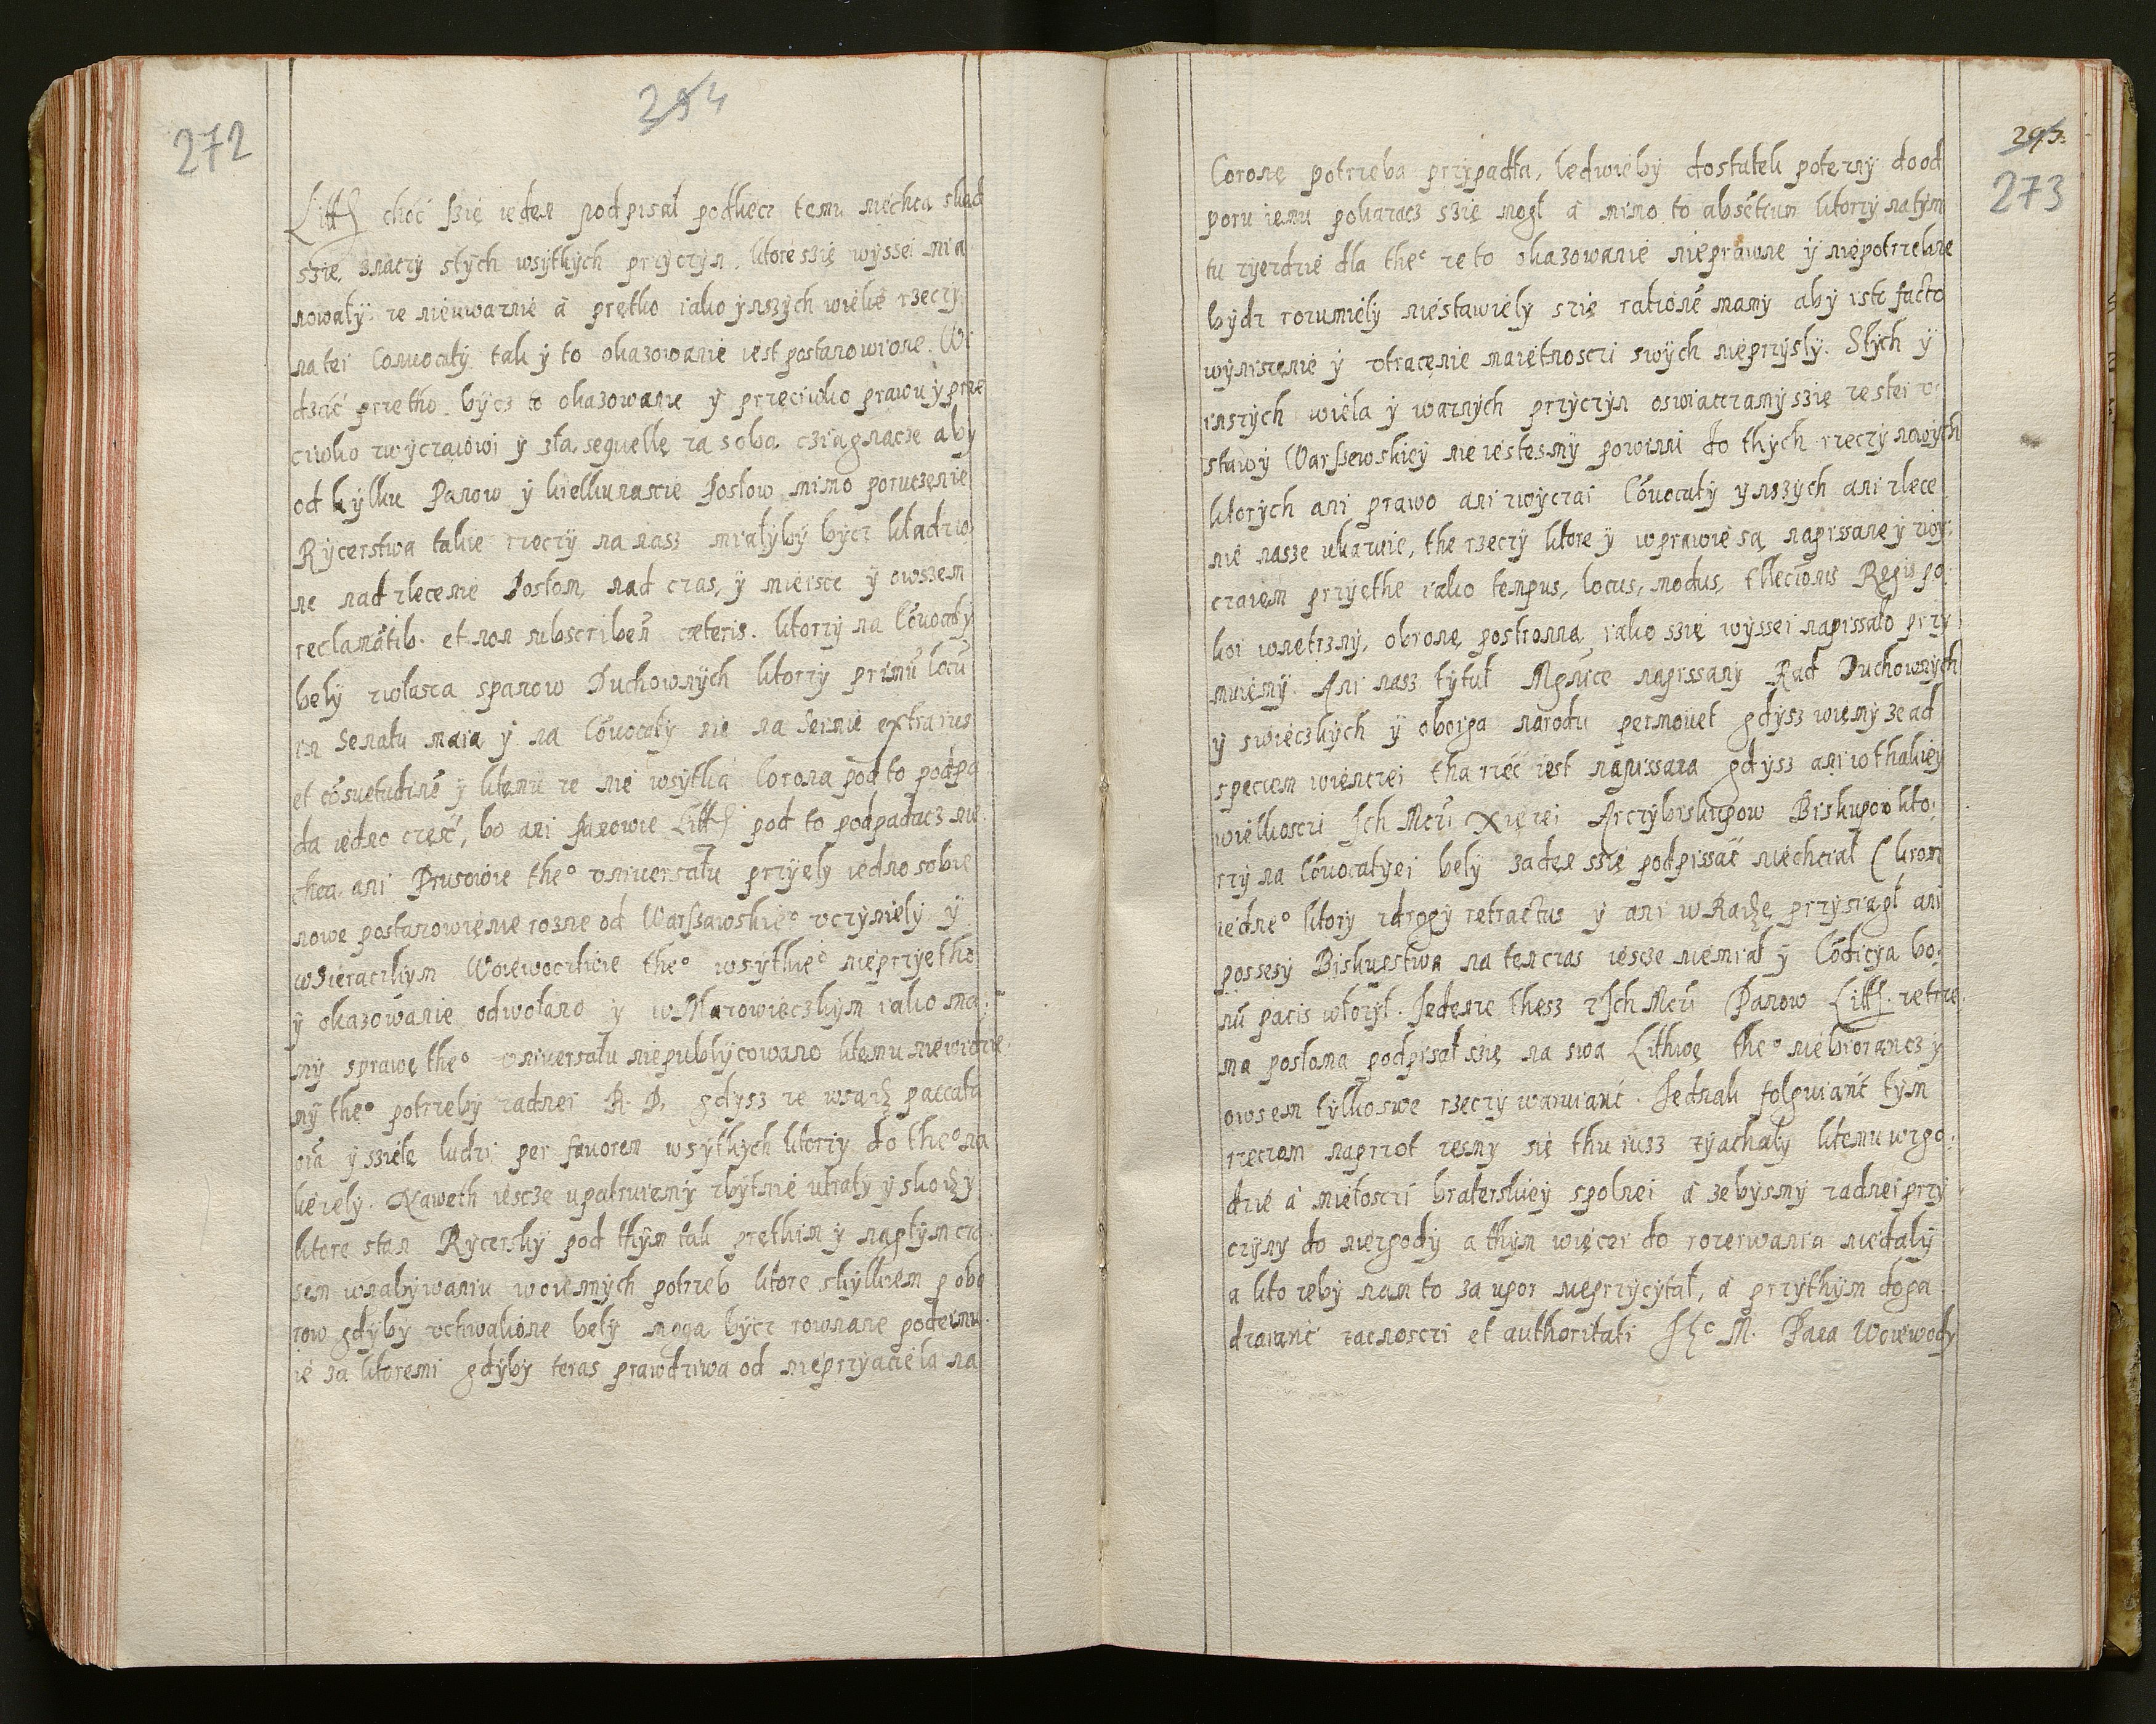 272
294
Litth choć szię ieden podpisał podlecz temu niechcą skąd
szie, znaczy stych wsytkych przyczyn, ktore szię wyssei mia
nowały, ze nieuwaznie á prętko iako ynszych wiele rzeczy
na tei Conuocaty tak y to okazowanie iest postanowione. Wi
dząć prętko bycz to okazowanie y przeciwko prawu y prze
ciwko zwyczaiowi y złą sequellę za sobą cziągnącze aby
od kylku Panow y kielkunascie Posłow mimo poruczenie
Rycerstwa takie rzeczy na nasz miałyby bycz kładzio
ne nad zlecenie Posłom, nad czas, y mieisce y owszem
reclamātib. et non subscribeñ cæteris. ktorzy na Cōuocaty
bely zwłascza spanow Duchownych ktorzy primū locū
in Senatu maią y na Cōuocaty nie na Seimie extra ius
et cōsuetudinē y ktemu ze nie wsytka Corona pod to podpa
da iedno część, bo ani panowie Litth pod to podpadacz nie
chcą ani Prusowie the° vniuersału przyely iedno sobie
nowe postanowienie rozne od Warszawskie° vczyniely y
wSieraczkym Woiewocztwie the° wsytkie° nieprzyetho
y okazowanie odwołano y wMazowieczkym iako ma
my sprawę the° vniuersału niepublycowano ktemu niewidzie
my the° potrzeby zadnei R. P. gdysz ze wsądz paccata
oīa y sziełę ludzi per fauorem wsytkych ktorzy do the° na
lezely. Naweth iescze upatruiemy zbytnie utraty y skodzy
ktore stan Rycersky pod thym tak prętkim y nagłym cza
sem wnabywaniu woiennych potrzeb ktore skylkiem pobo
row gdyby vchwalione bely mogą bycz rownane podeimu
ie za ktoremi gdyby teras prawdziwa od nieprzyaciela na
293
273
Coronę potrzeba przypadła, ledwieby dostatek potęzny do od
poru iemu pokazacz szię mogł á mimo to absētium ktorzy natym
tu zyezdzie dla the° ze to okazowanie nieprawne y niepotrzebne
bydz rozumiely niestawiely szię rationē mamy aby isti facto
wyniscenie y vtracenie maiętnoscri swych nieprzysly. Stych y
inszych wiela y waznych przyczyn oswiatczamy szię ze stei v
stawy Warszewskiey nie iestesmy powinni do thych rzeczy nowych
ktorych ani prawo ani zwyczai Cōuocaty ynszych ani zlece
nie nasze ukazuie, the rzeczy ktore y wprawie są napissane y zwy
czaiem przyethe iako tempus, locus, modus, Electionis Regis po
koi wnętrzny, obronę postronną iako szię wyssei napissało przy
muiemy. Ani nasz tytuł napissany Rad Duchownych
y swieczkych y oboiga narodu permouet gdysz wiemy ze ad
speciem więnczei tha rzeć iest napissana gdysz ani wthakiey
wielkoscri Ich Mczi Xięzei Arczybiskupow Biskupow kto
rzy na Cōuocatyei bely zaden szię podpissać niechciał (krom
iedne° ktory zdrogy retractus y ani wRadzę przysiągł ani
possesy Biskupstwa na tenczas iescze niemiał y Cōdicya bo
nū pacis wtorył. Iedenze thesz zIch Mczi Panow Litth. ze trze
ma posłoma podpisał szię na swą Lithwę the° niebiorąncz y
owsem tylko swe rzeczy waruianć. Iednak folguianć tym
rzeczom naprzot zesmy się thu iusz zyachały ktemu wzgo
dzie á miełoscri braterskiey spolnei á zebysmy zadnei przy
czyny do niezgody a thym więcei do rozerwania niedaly
a kto zeby nam to za upor nieprzyczytał, á przythym doga
dzaianć zacnoscri et authoritati Ih° M. Pana Woiewody